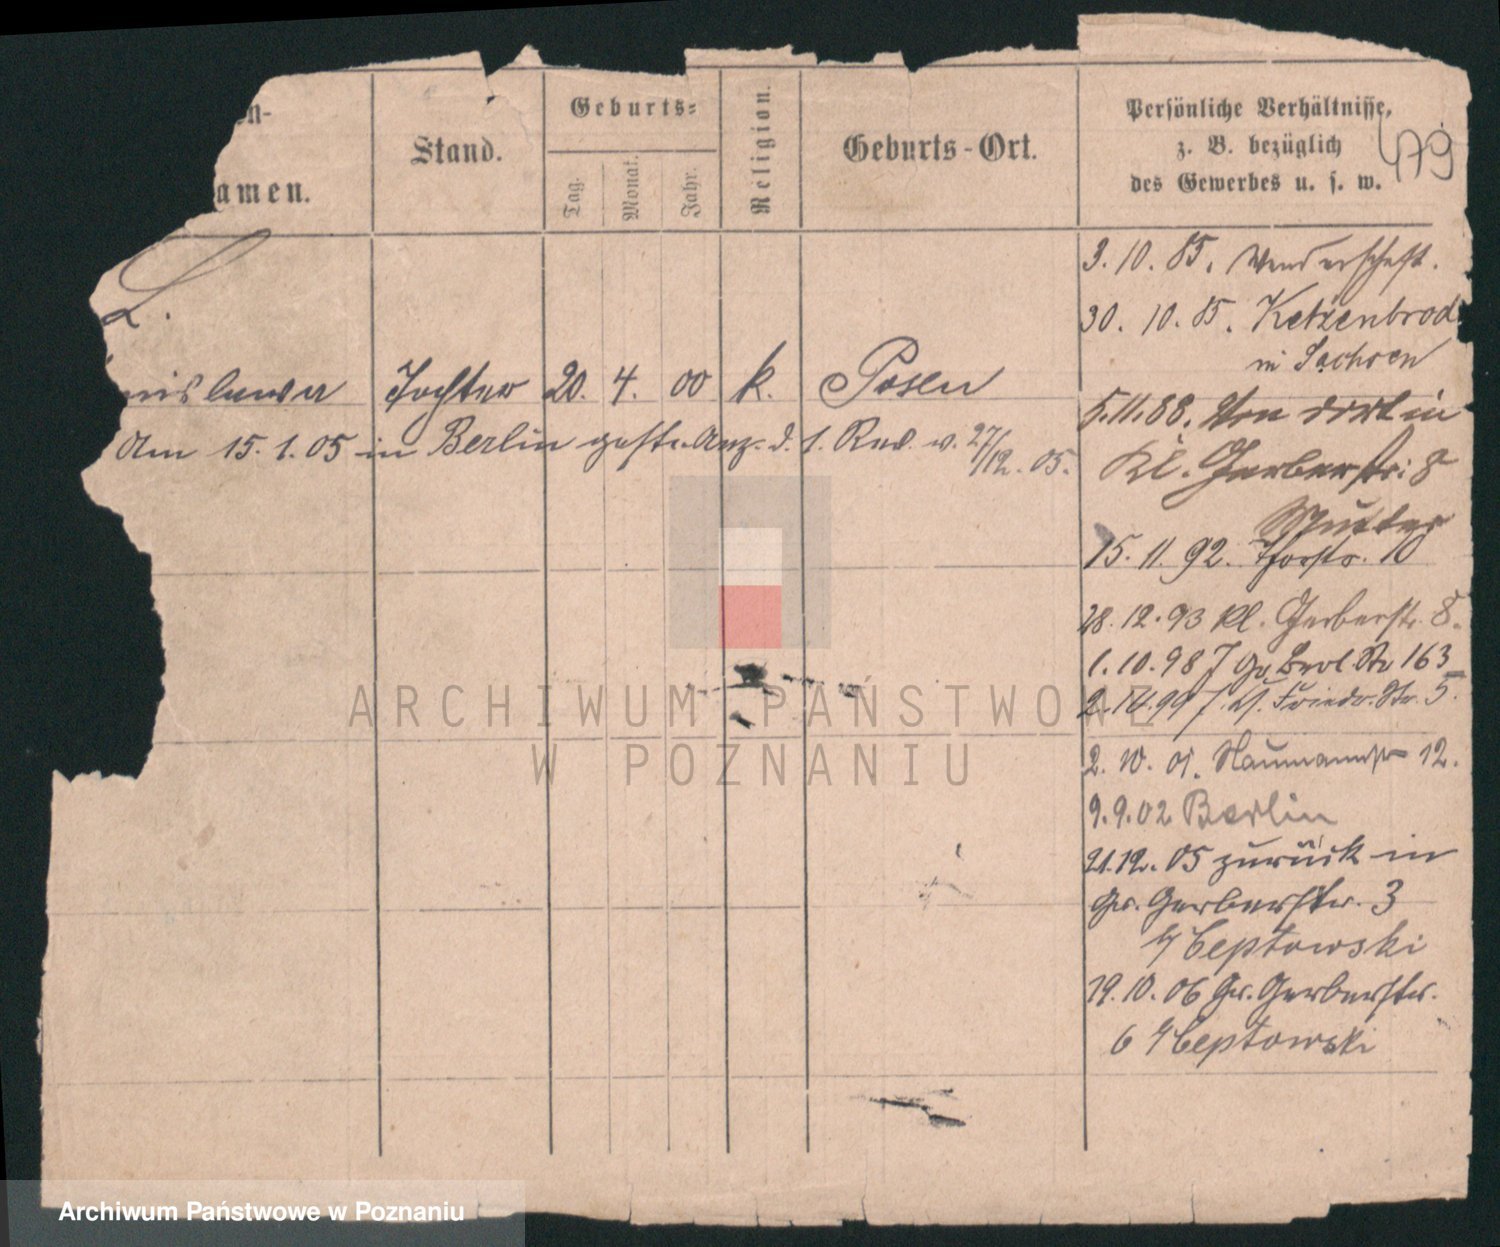 en-
amen.
Stand.
Geburts-
Tag.
Monat.
Jahr.
Religion.
Geburts-Ort.
Persönliche Verhältnisse,
z. B. bezüglich
des Gewerbes u. s. w.
479
L.
3. 10. 85. Wanderschaft.
30. 10. 85. Ketzenbrod
in Sachsen
nislawa Tochter 20. 4. 00 k. Posen
5.11.88. Von dort in
Am 15. 1. 05 in Berlin gest. Anz. d. 1. Rev. v. 27/12. 05.
Kl. Gerberstr. 8
Mutter
15. 11. 92. Thorstr. 10
28. 12. 93 Kl. Gerberstr. 8.
1. 10. 98 Gr Berl. Str 163
2. 10. 99 Friedr. Str. 5.
2. 10. 01. Naumannstr 12.
9. 9. 02 Berlin
21.12. 05 zurück in
Gr. Gerberstr. 3
b/ Ceptowski
19. 10. 06 Gr. Gerberstr.
6 b/ Ceptowski
ARCHIWUM PAŃSTWOWE
W POZNANIU
Archiwum Państwowe w Poznaniu